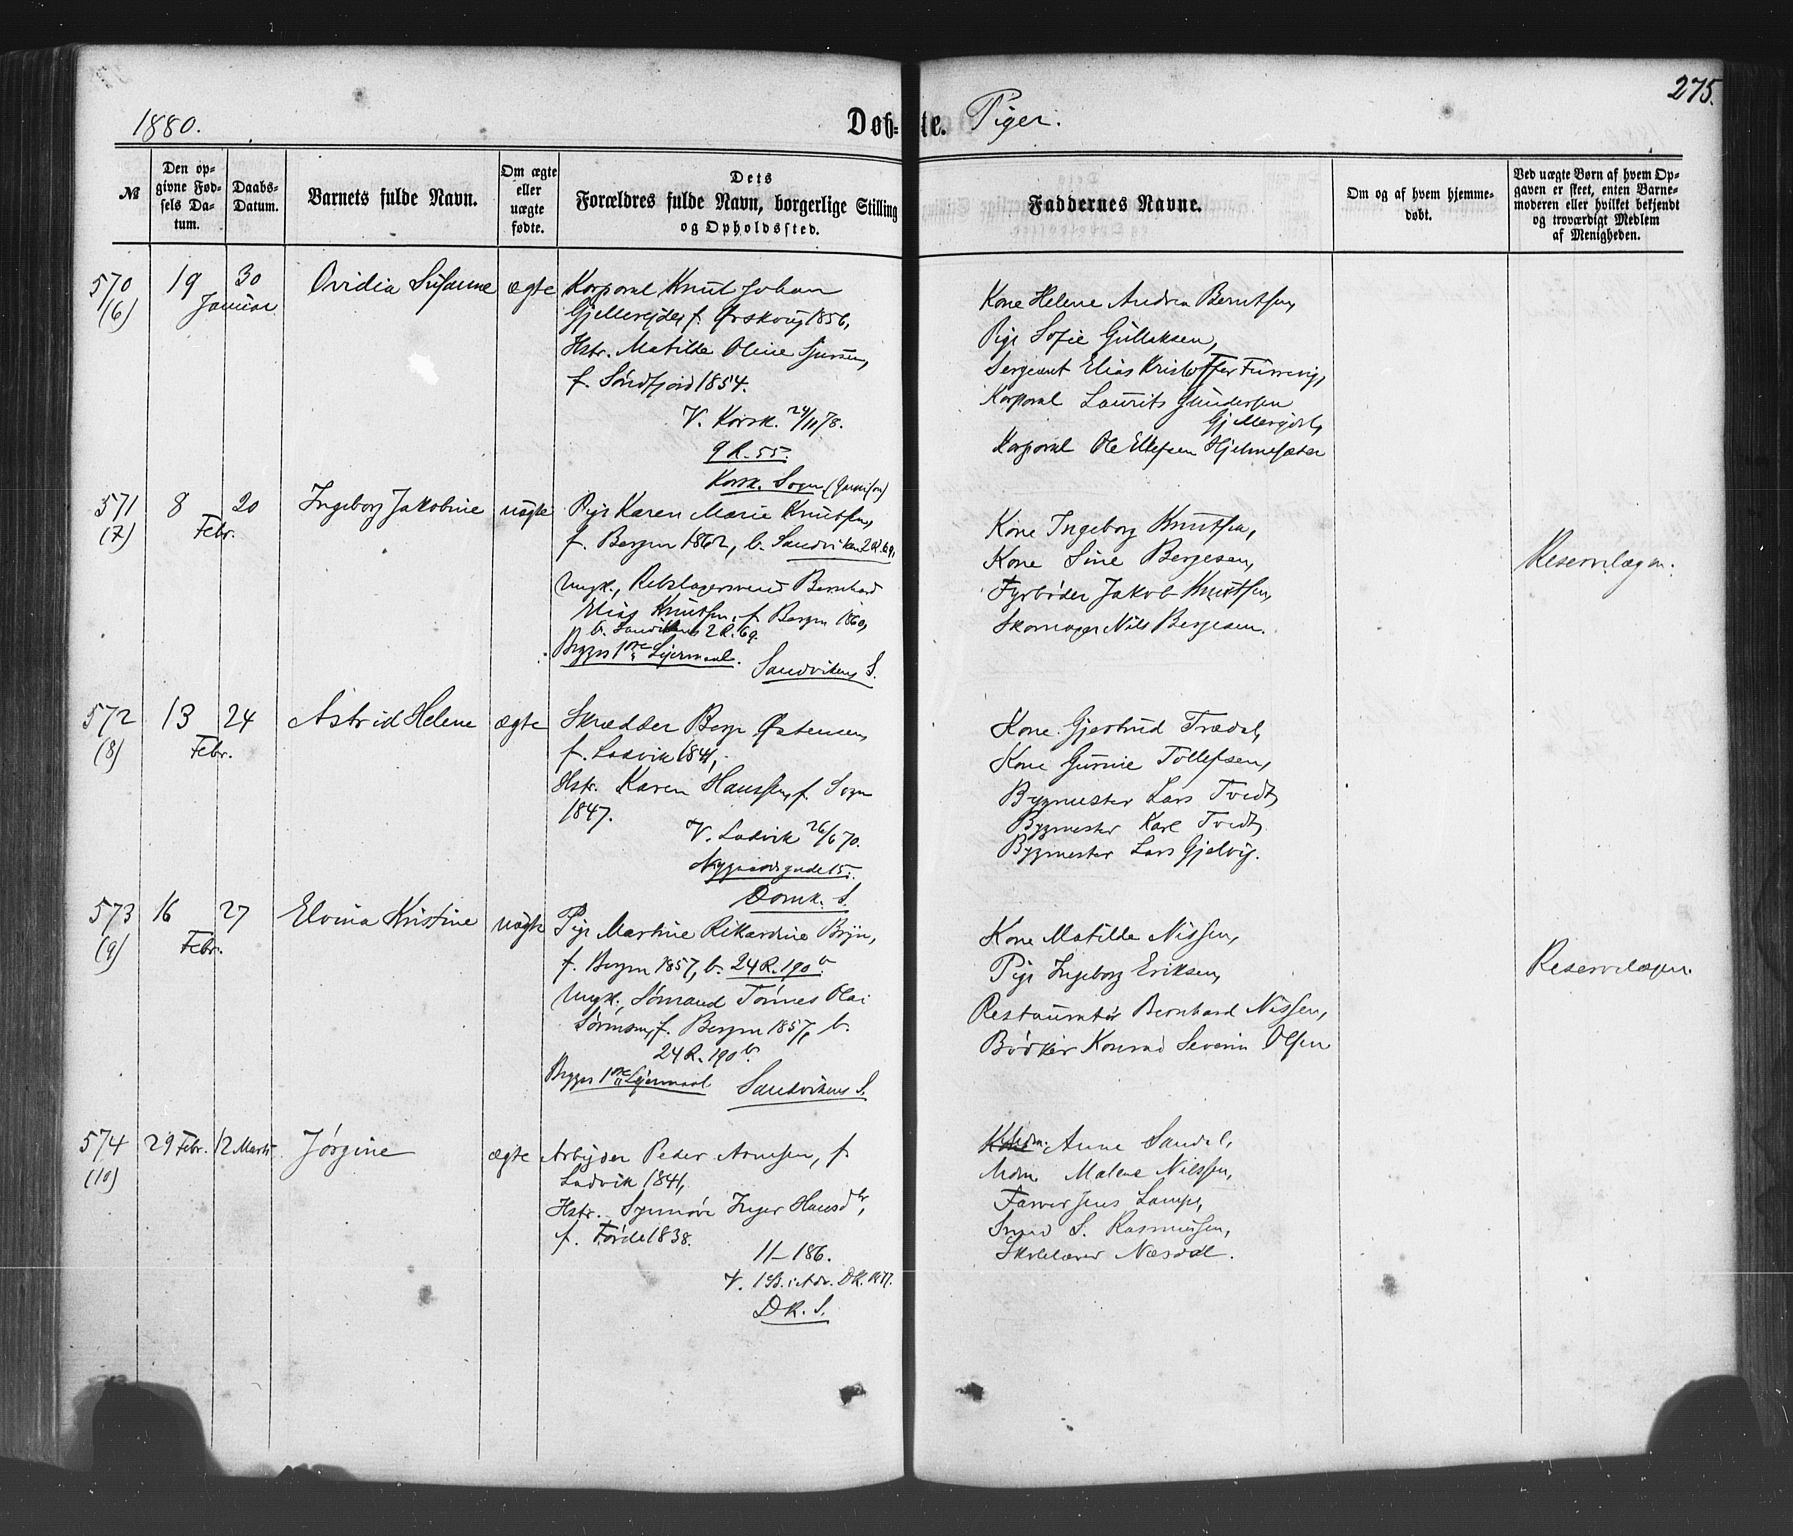 275.
1880.
Døbte. Piger.
№
Den opgivne Fødsels Datum.
Daabs-Datum.
Barnets fulde Navn.
Om ægte eller uægte fødte.
Dets Forældres fulde Navn, borgerlige Stilling og Opholdssted.
Faddernes Navne.
Om og af hvem hjemmedøbt.
Ved uægte Børn af hvem Opgaven er skeet, enten Barnemoderen eller hvilket bekjendt og troværdigt Medlem af Menigheden.
570 (6)
19 30 Januar
Ovidia Susanne
ægte
Korporal Knut Johan
f. Ørskoug 1856,
Hstr. Matilde Oline
f. Søndfjord 1854.
V. Korsk. 24/11 78.
9 R. 55.
Korsk. Sogn (Garnison)
Kone Helene Andrea Berntsen,
Pige Sofie Gullaksen,
Sergeant Elias Kristoffer Furrevig,
Korporal Laurits Gundersen
Korporal Ole Ellefsen Hjelmesæter
571 (7)
8 20 Febr.
Ingeborg Jakobine
uægte
Pige Karen Marie Knutsen,
f. Bergen 1862, b. Sandviken 2 R. 69,
Ungk., Rebslagersvend Bernhard
Elias Knutsen, f. Bergen 1860,
b. Sandviken 2 R. 69.
Begges 1ste Leiermaal. Sandvikens S.
Kone Ingeborg Knutsen,
Kone Sine Bergesen,
Fyrbøder Jakob Knutsen,
Skomager Nils Bergesen.
Reservelægen.
572 (8)
13 24 Febr.
Astrid Helene
ægte
Skrædder Berge Østensen,
f. Ladvik 1841,
Hstr. Karen Hanssen, f. Sogn
1847.
V. Ladvik 26/6 70.
Nygaardsgade 15.
Domk. S.
Kone Gjertrud Trædal,
Kone Gurine Tollefsen,
Bygmester Lars Tvedt,
Bygmester Karl Tvedt,
Bygmester Lars Gjelvig.
573 (9)
16 27 Febr.
Elvina Kristine
uægte
Pige Martine Rikardine Bryn,
f. Bergen 1857, b. 24 R. 190 b.
Ungk., Sømand Tønnes Olai
Sørensen, f. Bergen 1857, b.
24 R. 190 b.
Begges 1ste Leiermaal Sandvikens S.
Kone Matilde Nissen,
Pige Ingeborg Eriksen,
Restauratør Bernhard Nissen,
Bødker Konrad Severin Olsen
Reservelægen.
574 (10)
29 Febr. 12 Marts
Jørgine
ægte
Arbeider Peder Arnesen, f.
Ladvik 1841,
Hstr. Synnøve Inger Hansdtr,
f. Førde 1838.
11-186.
DK. S.
Anne Sandal,
Mdm. Malene Nilssen,
Farver Jens Lampe,
Smed S. Rasmussen,
Skolelærer Næsdal.